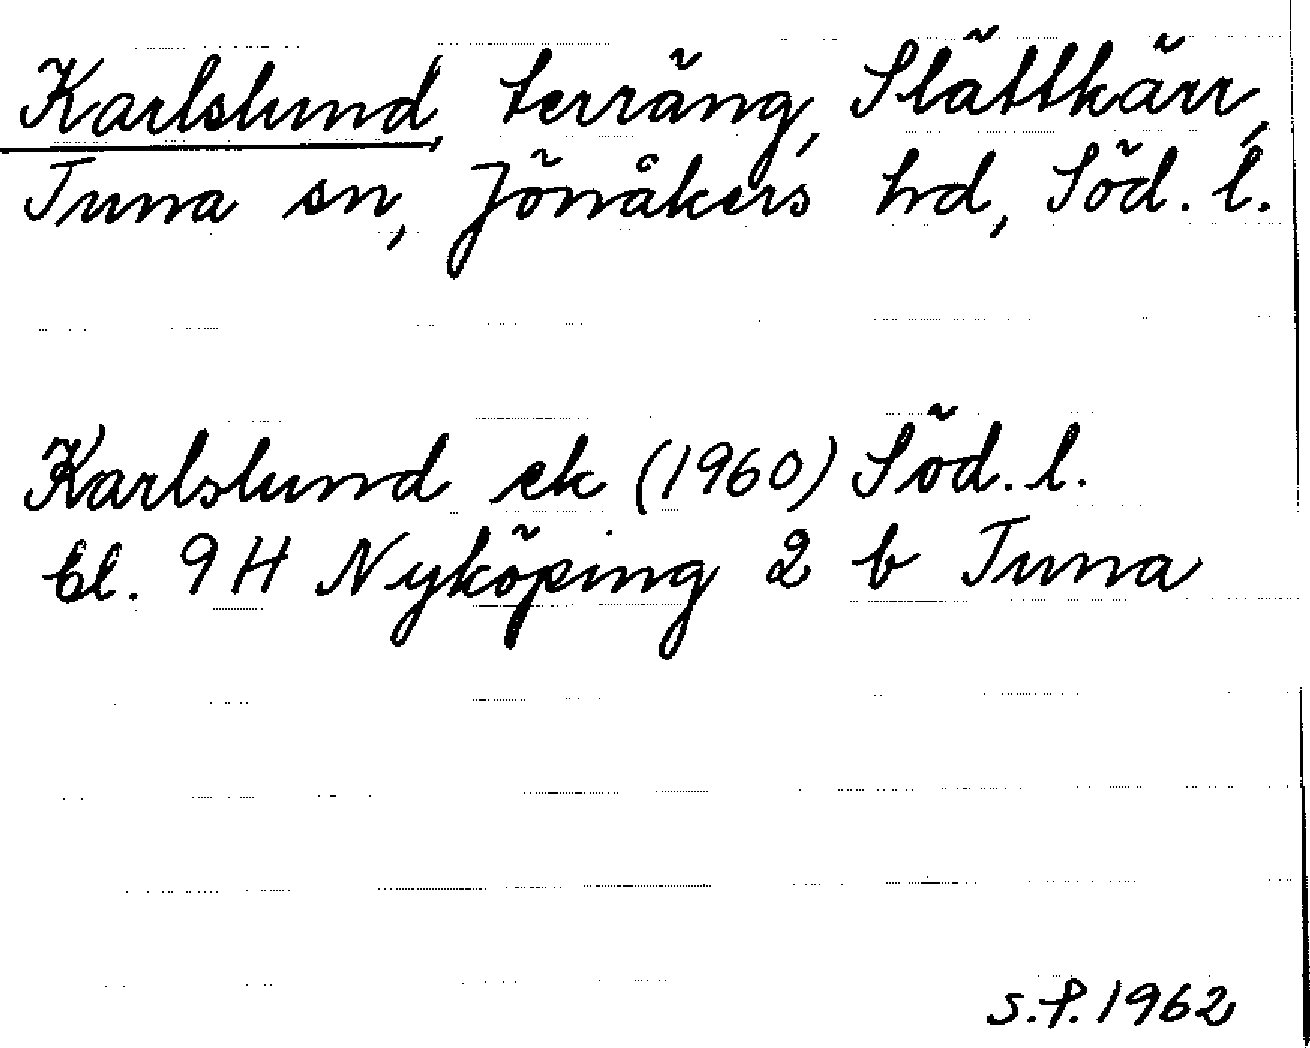 Karlslund, terräng, Slättkärr,
Tuna sn, Jönåkers hd, Söd. l.
Karlslund ek (1960) Söd. l.
bl. 9 H Nyköping 2 b Tuna
S.P. 1962